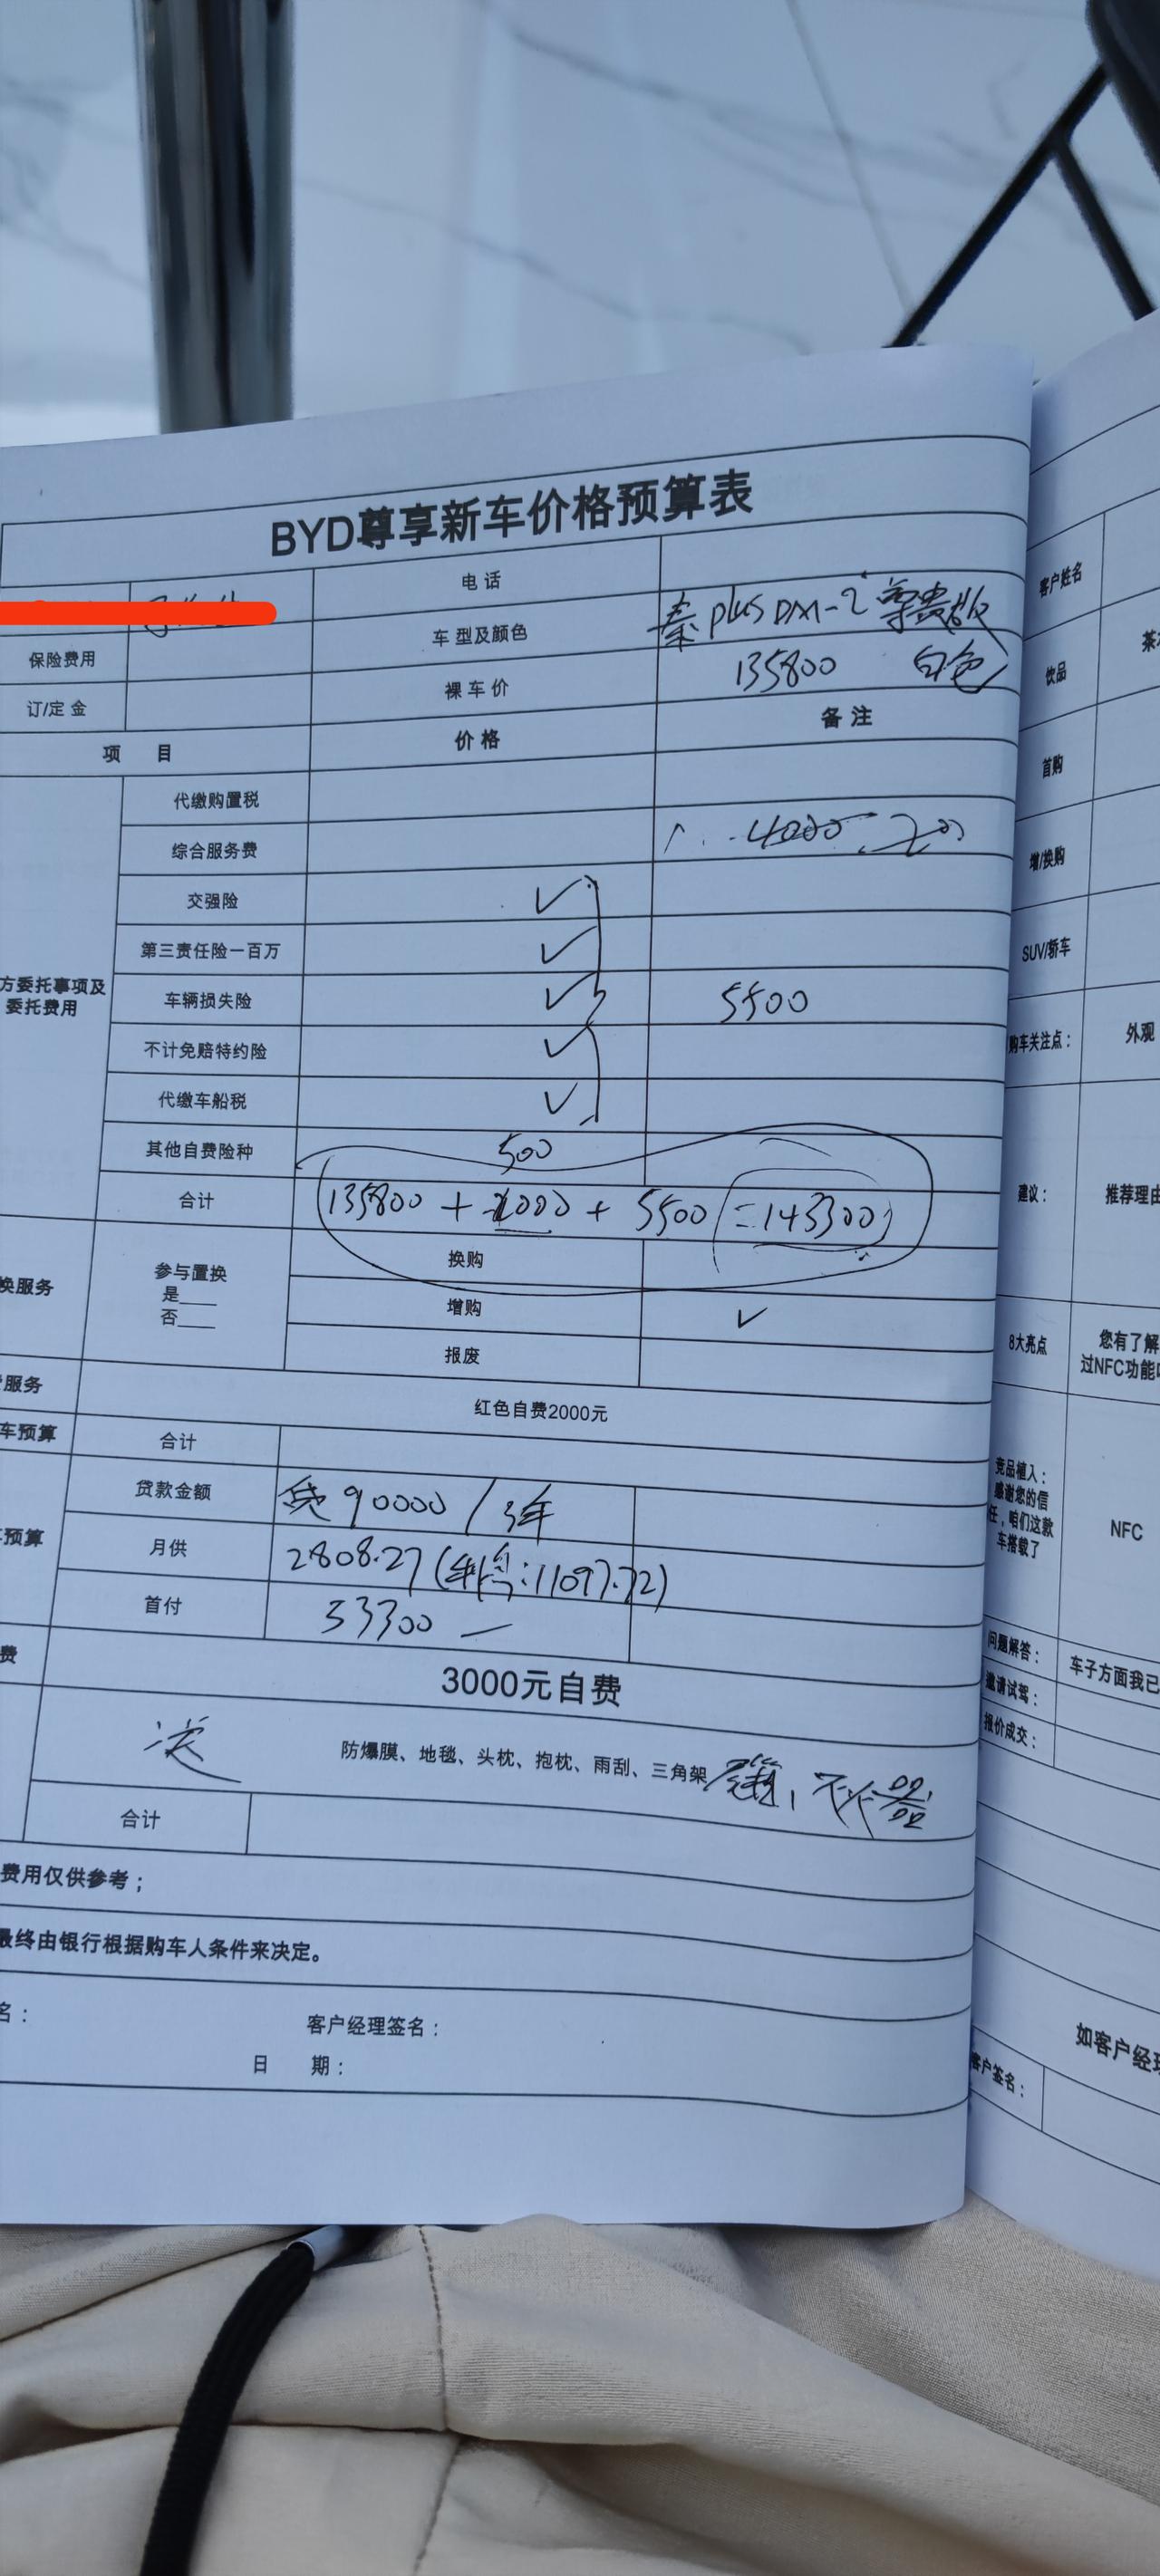 BYD尊享新车价格预算表
电话
保险费用
车型及颜色
秦plus DM-i 尊贵版
订/定金
裸车价
135800 白色
项 目
价格
备注
代缴购置税
综合服务费
4000
交强险
第三责任险一百万
方委托事项及
委托费用
车辆损失险
5500
不计免赔特约险
代缴车船税
其他自费险种
500
合计
135800 + 2000 + 5500 = 143300
换服务
参与置换
是____
否____
换购
增购
报废
服务
红色自费2000元
车预算
合计
预算
贷款金额
贷90000/3年
月供
2808.27(利息:11097.72)
首付
53300
费
3000元自费
送
防爆膜、地毯、头枕、抱枕、雨刮、三角架
灭火器
合计
费用仅供参考;
最终由银行根据购车人条件来决定。
名:
客户经理签名:
日 期:
客户姓名
饮品
茶
首购
增/换购
SUV/轿车
购车关注点:
外观
建议:
推荐理由
8大亮点
您有了解
过NFC功能
竞品植入:
感谢您的信
任,咱们这款
车搭载了
NFC
问题解答:
车子方面我已
邀请试驾:
报价成交:
如客户经理
客户签名: